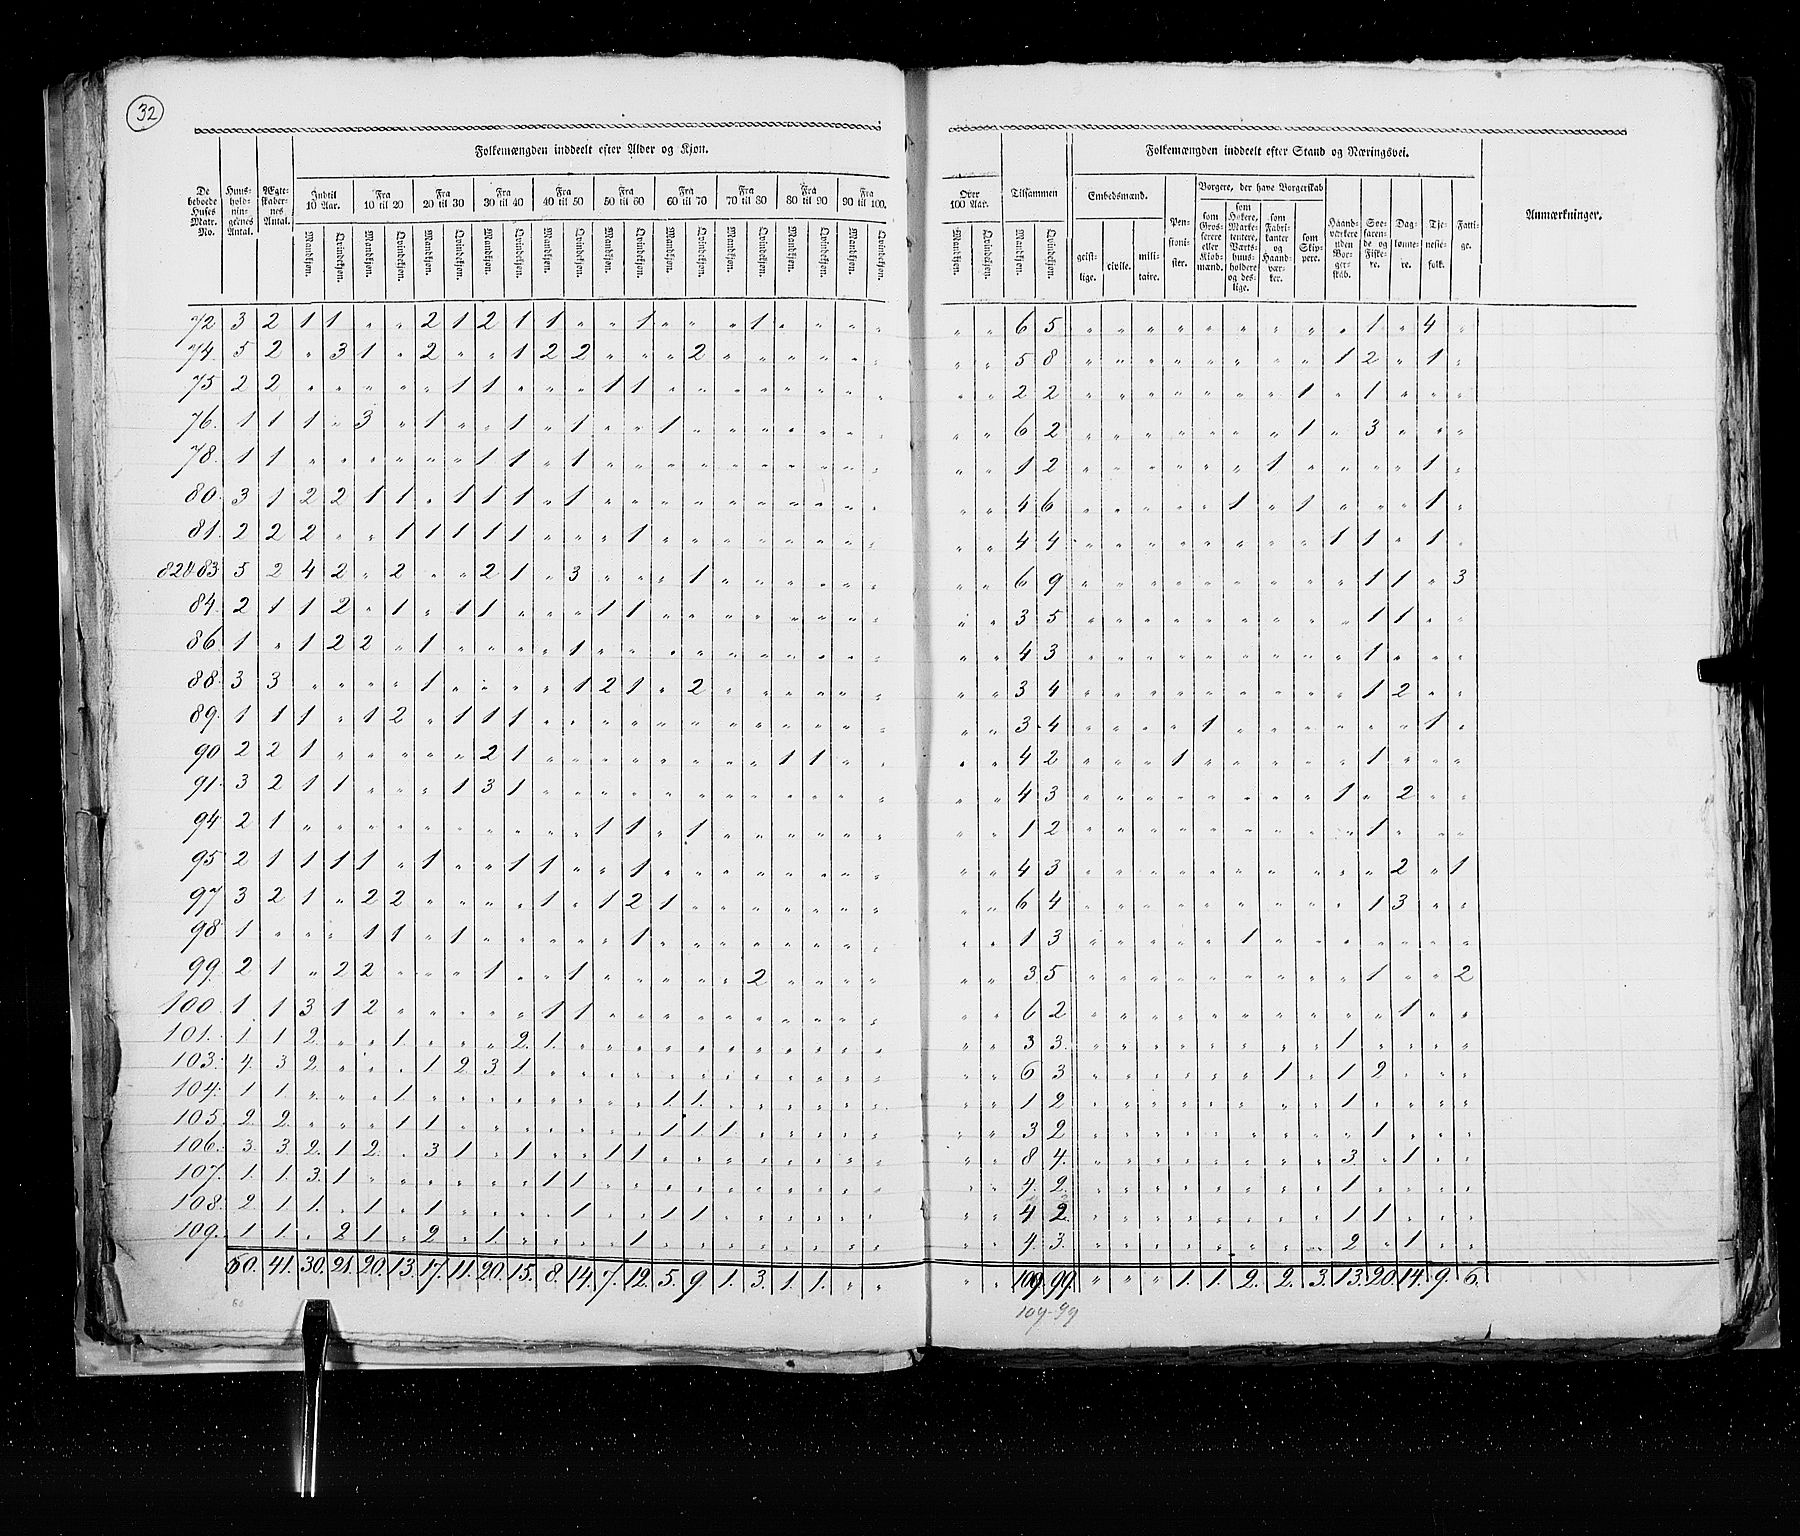 32
Folkemængden inddeelt efter Alder og Kjøn.
De beboede Huses Matr. No.
Huus-holdningernes Antal.
Ægteskabernes Antal.
Indtil 10 Aar.
Fra 10 til 20
Fra 20 til 30
Fra 30 til 40
Fra 40 til 50
Fra 50 til 60
Fra 60 til 70
Fra 70 til 80
Fra 80 til 90
Fra 90 til 100.
Mandkjøn. Qvindekjøn. Mandkjøn. Qvindekjøn. Mandkjøn. Qvindekjøn. Mandkjøn. Qvindekjøn. Mandkjøn. Qvindekjøn. Mandkjøn. Qvindekjøn. Mandkjøn. Qvindekjøn. Mandkjøn. Qvindekjøn. Mandkjøn. Qvindekjøn. Mandkjøn. Qvindekjøn.
Folkemængden inddeelt efter Stand og Næringsvei.
Over 100 Aar.
Tilsammen
Mandkjøn. Qvindekjøn. Mandkjøn. Qvindekjøn.
Embedsmænd.
geistlige. civile. militaire.
Pensionister.
Borgere, der have Borgerskab
som Grosserere eller Kiøbmænd.
som Høkere, Marketentere, Værtshuusholdere og deslige.
som Fabrikanter og Haandværker.
som Skippere.
Haandværkere uden Borgerskab.
Søefarende og Fiskere.
Dagløannere.
Tjenestefolk.
Fattige.
Anmærkninger.
72 3 2 1 1 " " 2 1 2 1 1 " " 1 " " " 1 " " " " " " 6 5 " " " " " " " " " 1 " 4 "
74 5 2 " 3 1 " 2 " " 1 2 2 " " " 2 " " " " " " " " 5 8 " " " " " " " " 1 2 " 1 "
75 2 2 " " " " " 1 1 " " " 1 1 " " " " " " " " " " 2 2 " " " " " " " 1 " 1 " " "
76. 1 1 1 " 3 " 1 " " 1 " 1 " " 1 " " " " " " " " " 6 2 " " " " " " " 1 " 3 " " "
78. 1 1 " " " " " " 1 1 " 1 " " " " " " " " " " " " 1 2 " " " " " " 1 " " " " 1 "
80. 3 1 2 2 1 1 " 1 1 1 " 1 " " " " " " " " " " " " 4 6 " " " " " 1 " 1 " " " 1 "
81. 2 2 2 " " 1 1 1 1 1 " " " 1 " " " " " " " " " " 4 4 " " " " " " " " 1 1 " 1 "
82&83 5 2 4 2 " 2 " " 2 1 " 3 " " " 1 " " " " " " " " 6 9 " " " " " " " " " 1 1 " 3
84. 2 1 1 2 " 1 " 1 1 " " " 1 1 " " " " " " " " " " 3 5 " " " " " " " " " 1 1 " "
86 1 " 1 2 2 " 1 " " " " 1 " " " " " " " " " " " " 4 3 " " " " " " " " " 1 " " "
88. 3 3 " " " " 1 " " " " 1 2 1 " 2 " " " " " " " " 3 4 " " " " " " " " " 1 2 " "
89. 1 1 1 " 1 2 " 1 1 1 " " " " " " " " " " " " " " 3 4 " " " " 1 " " " " " " 1 "
90 2 2 1 " " " " " 2 1 " " " " " " " " 1 1 " " " " 4 2 " " " 1 " " " " " 1 " " "
91. 3 2 1 1 " " " 1 3 1 " " " " " " " " " " " " " " 4 3 " " " " " " " " 1 " 2 " "
94 2 1 " " " " " " " " " " 1 1 " 1 " " " " " " " " 1 2 " " " " " " " " " 1 " " "
95 2 1 1 1 1 " 1 " " 1 1 " " 1 " " " " " " " " " " 4 3 " " " " " " " " " " 2 " 1
97 3 2 1 " 2 2 " " " " 1 " 1 2 1 " " " " " " " " " 6 4 " " " " " " " " " 1 3 " "
98 1 " " " 1 1 " 1 " " " " " 1 " " " " " " " " " " 1 3 " " " " " 1 " " " " " " "
99. 2 1 " 2 2 " " " 1 " " 1 " " " " " 2 " " " " " " 3 5 " " " " " " " " " 1 " " 2
100. 1 1 3 1 2 " " " " " 1 1 " " " " " " " " " " " " 6 2 " " " " " " " " " " 1 " "
101. 1 1 2 " " 1 " " " 2. 1. " " " " " " " " " " " " " 3 3. " " " " " " " " 1 " " " "
103. 4. 3 2 " " " 1 2 3 1 " " " " " " " " " " " " " " 6 3 " " " " " " 1 " 1 2 " " "
104. 1 1. " " " 1 " " " " " " " " 1. 1. " " " " " " " " 1 2 " " " " " " " " 1 " " " "
105. 2. 2. " " " 1 1 " " " " " " " 1 1. 1 " " " " " " " 3 2 " " " " " " " " " 1 " " "
106. 3. 3 2. 1 2. " 3 1 " 1 " " 1 1 " " " " " " " " " " 8 4. " " " " " " " " 3. " 1 " "
107. 1. 1. 3. 1 " " " " " " 1 1 " " " " " " " " " " " " 4 2. " " " " " " " " 1 " " " "
108. 2. 1 1. " 1 " 1 " " " " 1 " " 1 1 " " " " " " " " 4 2. " " " " " " " " 1 1 " " "
109. 1 1. " 2 1 " 2 " 1 " " " " 1 " " " " " " " " " " 4. 3. " " " " " " " " 2 " 1 " "
60. 41. 30. 21. 20. 13. 17. 11. 20. 15. 8. 14. 7. 12. 5. 9. 1. 3. 1. 1. " " " " 109 99. " " " 1. 1. 2. 2. 3. 13. 20. 14. 9. 6.
60 109-99